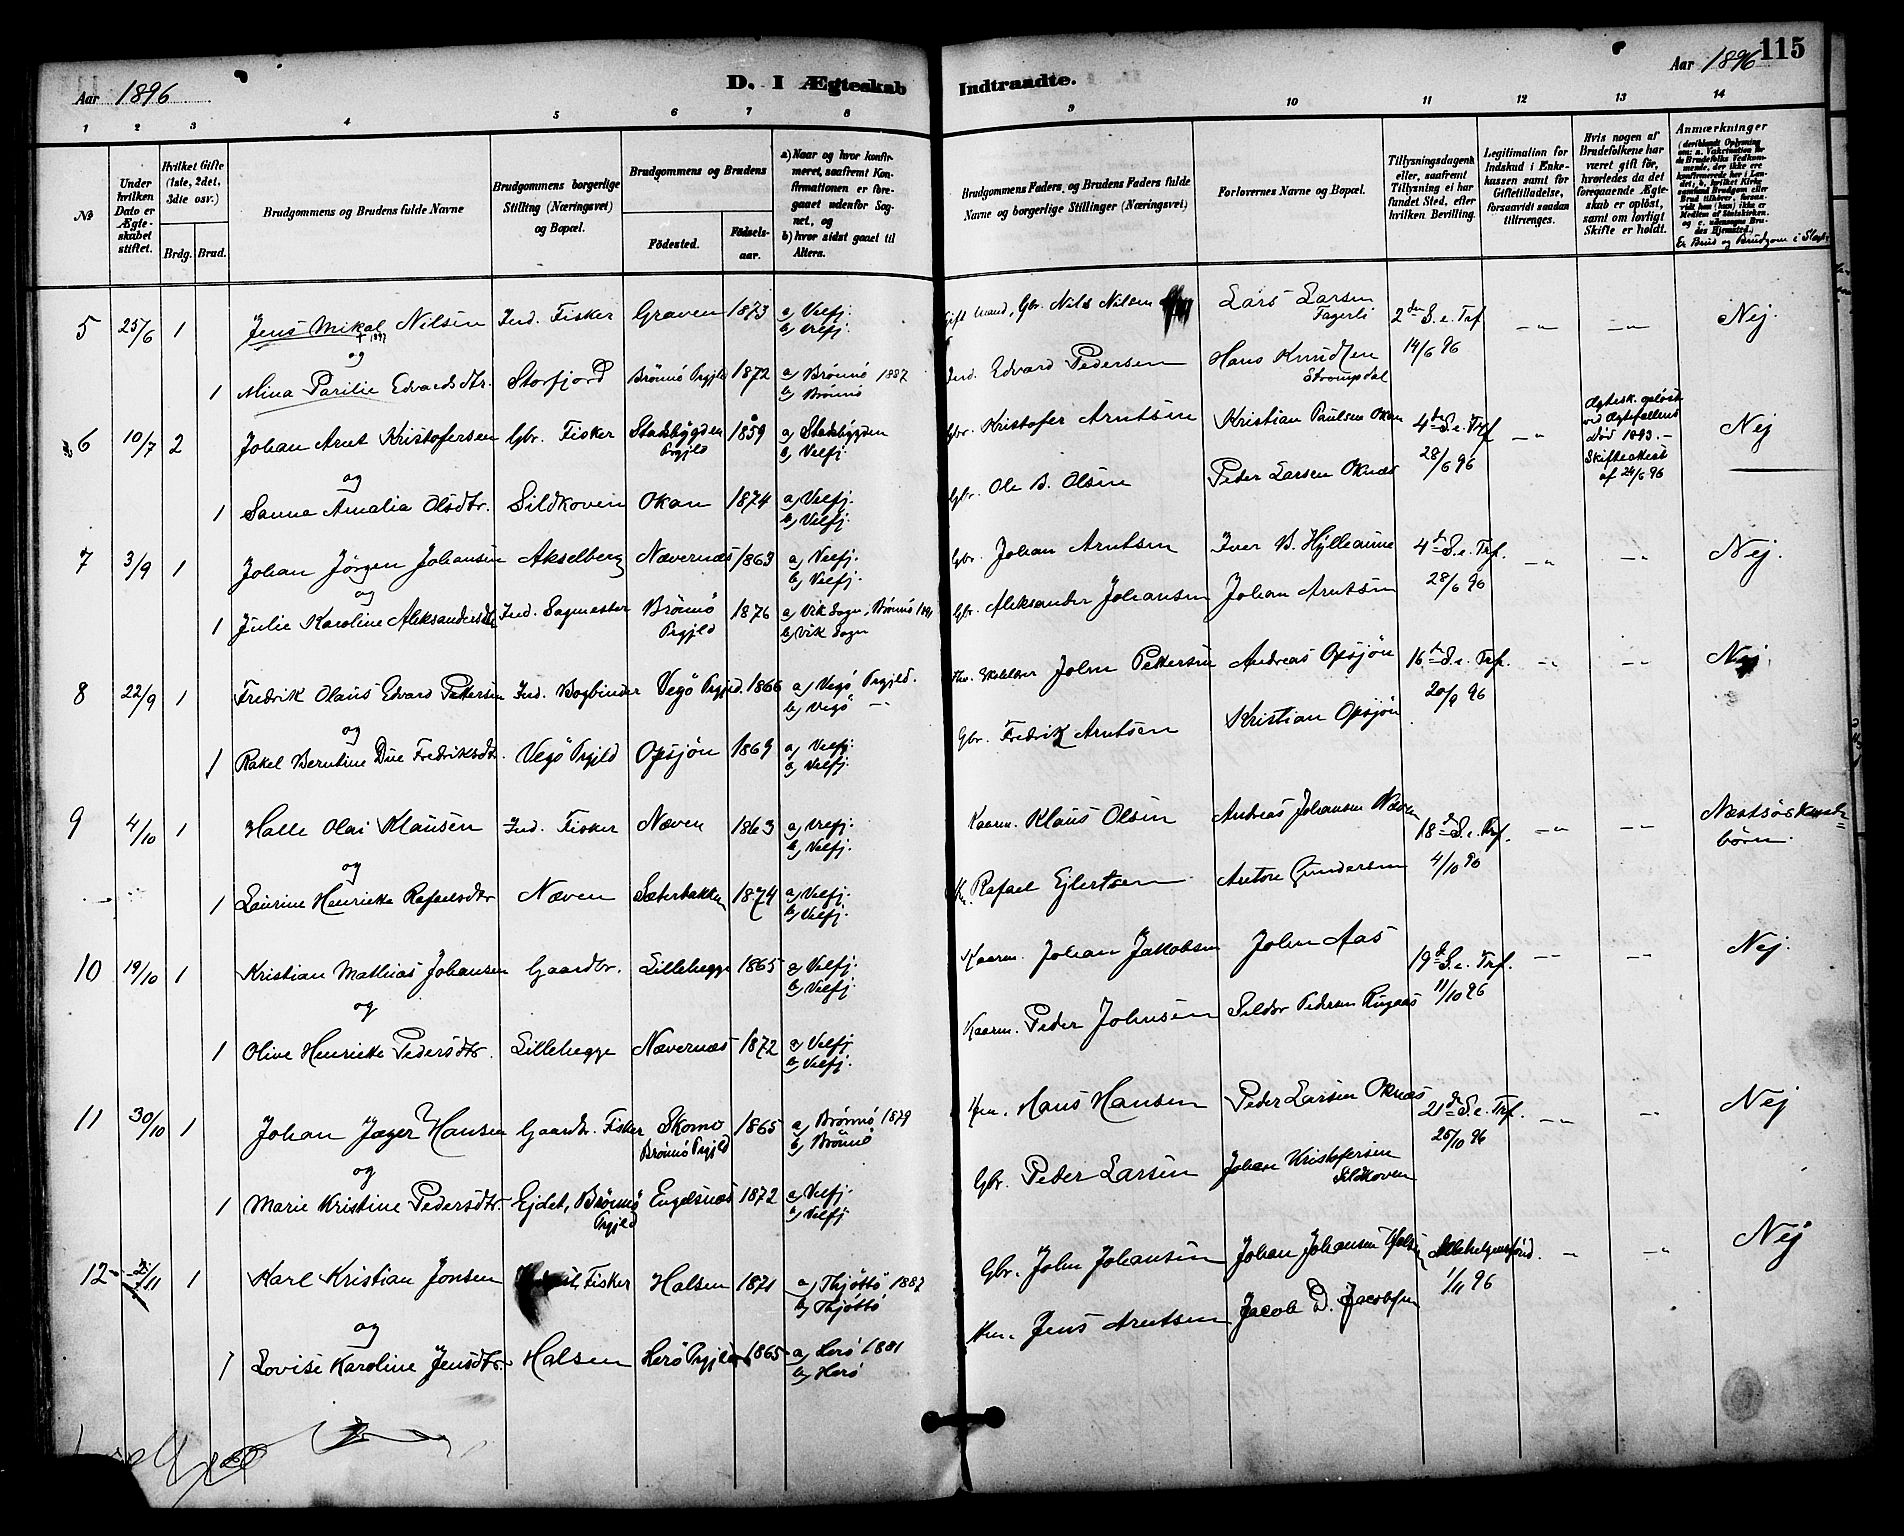 Aar 1896
D. I Ægteskab Indtraadte.
Aar 1896 115
1 2 3 4 5 6 7 8 9 10 11 12 13 14
No
Under hvilken Dato er Ægteskabet stiftet.
Hvilket Gifte (1ste, 2det, 3die osv.)
Brdg. Brud.
Brudgommens og Brudens fulde Navne
Brudgommens borgerlige Stilling (Næringsvei) og Bopæl.
Brudgommens og Brudens
Fødested. Fødselsaar.
a) Naar og hvor konfirmeret, saafremt Konfirmationen er foregaaet udenfor Sognet, og
b) hvor sidst gaaet til Alters.
Brudgommens Faders, og Brudens Faders fulde Navne og borgerlige Stillinger (Næringsvei)
Forlovernes Navne og Bopæl.
Tillysningsdagene eller, saafremt Tillysning ei har fundet Sted, efter hvilken Bevilling.
Legitimation for Indskud i Enkekassen samt for Giftetilladelse, forsaavidt saadan tiltrenges.
Hvis nogen af Brudefolkene har været gift før, hvorledes da det foregaaende Ægteskab er opløst, samt om lovligt Skifte er holdt.
Anmærkninger
Er Brud og Brudgom i Slægt
5 25/6 1 Jens Mikal Nilsen Ind. Fisker Graven 1873 a) Velfj. b) Velfj. Gift Mand, Gbr. Nils Nilsen Lars Larsen Fagerli 2den S. e. Trf. 14/6 96 -„- -„- Nej.
† 1897
og
1 Mina Parilie Edvardsdtr. Storfjord Brönnö Prgjld 1872 a) Brönnö 1887 b) Brönnö Ind. Edvard Pedersen Hans Knudtzen Strompdal
6 10/7 2 Johan Arnt Kristofersen Gbr. Fisker Stadsbygden Prgjld 1859 a) Stadsbygden b) Velfj. Gbr. Kristofer Arntsen Kristian Paulsen Okan 4de S. e. Trf 28/6 96 -„- Ægtesk. opløst ved Ægtefællens Død 1893. - Skifteattest af 24/6 96 Nej
og
1 Sanna Amalia Olsdtr. Sildkoven Okan 1874 a) Velfj. b) Velfj. Gbr. Ole B. Olsen Peder Larsen Oknæs
7 3/9 1 Johan Jörgen Johansen Akselberg Nævernæs 1863 a) Velfj. b) Velfj. Gbr. Johan Arntsen Iver B. Hylleaune 4de S. e. Trf. 28/6 96 -„- -„- Nej.
og
1 Julie Karoline Aleksandersdtr Ind. Sagmester Brönnö Prgjld 1876 a) Vik Sogn, Brönnö 1891 b) Vik Sogn Gbr. Aleksander Johansen Johan Arntsen
8 22/9 1 Fredrik Olaus Edvard Pettersen Ind. Bogbinder Vegö Prgjld. 1866 a) Vegö Prgjld. b) Vegö -„- John Pettersen Andreas Opsjön 16de S. e. Trf. 20/9 96 -„- -„- Nej.
og
1 Rakel Berntine Due Fredriksdtr. Vegö Prgjld Opsjön 1869 a) Velfj. b) Velfj. Gbr. Fredrik Arntsen Kristian Opsjön
9 4/10 1 Halle Olai Klausen Ind. Fisker Næven 1863 a) Velfj. b) Velfj. Kaarm. Klaus Olsen Andreas Johansen Næven 18de S. e. Trf. 4/10 96 -„- -„- Næstsøskendebörn.
og
1 Laurine Henrikke Rafaelsdtr Næven Sæterbakken 1874 a) Velfj. b) Velfj. Hm. Rafael Ejlertsen Aretsre Gundersen
10 19/10 1 Kristian Mathias Johansen Gaardbr. Lillehegge 1865 a) Velfj. b) Velfj. Kaarm. Johan Jakobsen John Aas 19de S. e. Trf. 11/10 96 -„- -„- Nej.
og
1 Olive Henrikke Pedersdtr. Lillehegge Nævernæs 1872 a) Velfj. b) Velfj. Kaarm. Peder Johnsen Sildor Pedersen Rugaas
11 30/10 1 Johan Jæger Hansen Gaardbr. Fisker Skomo Brönnö Prgjld 1865 a) Brönnö 1879 b) Brönnö Hm. Hans Hansen Peder Larsen Oknæs 21de S. e. Trf. 25/10 96 -„- -„- Nej
og
1 Marie Kristine Pedersdtr. Ejdet, Brönnö Prgjld Engelsnæs 1872 a) Velfj. b) Velfj Gbr. Peder Larsen Johan Kristofersen Sildkoven
12 /11 1 Karl Kristian Jonsen Fisker Halsen 1871 a) Thjöttö 1887 b) Thjöttö Gbr. John Johansen Johan Johansen Allehelgensfond. 1/11 96 -„- Nej
og
1 Lovise Karoline Jensdtr Halsen Herö Prgjld 1865 a) Herö 1881 b) Herö Hm. Jens Arntsen Jacob D. Jacobsen